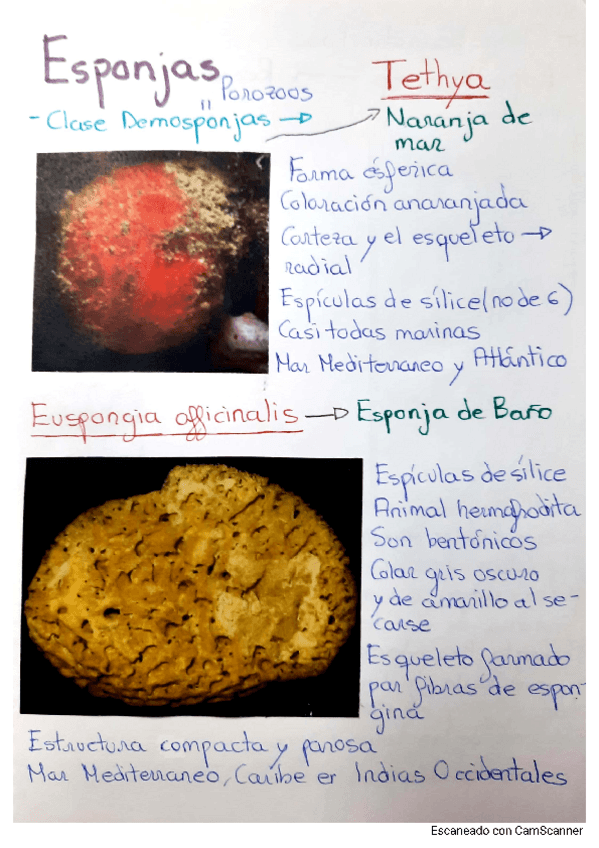 Esponjas
Porozoos
Tethya
- Clase Demosponjas →
Naranja de
mar
Forma ésferica
Coloración anaranjada
Corteza y el esqueleto →
radial
Espículas de sílice (no de 6)
Casi todas marinas
Mar Mediterraneo y Atlántico
Euspongia officinalis → Esponja de Baño
Espículas de sílice
Animal hermafrodita
Son bentónicos
Color gris oscuro
y de amarillo al se-
carse
Esqueleto formado
por fibras de espon-
gina
Estructura compacta y porosa
Mar Mediterraneo, Caribe er Indias Occidentales
Escaneado con CamScanner